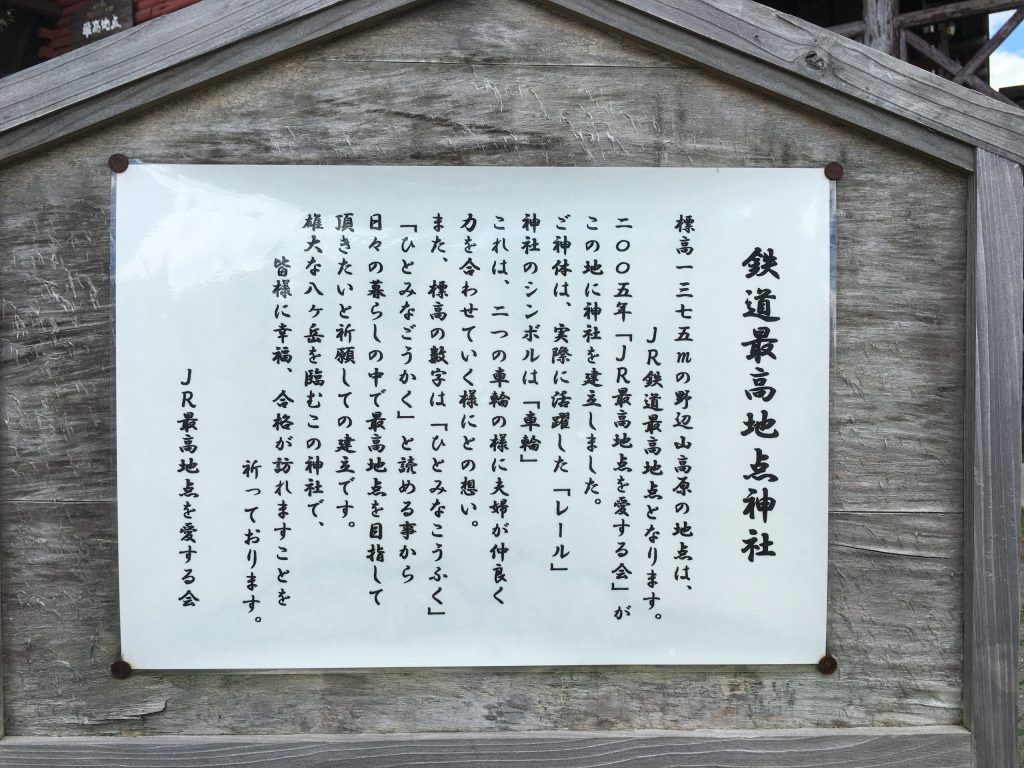 最高地点
鉄道最高地点神社
標高一三七五mの野辺山高原の地点は、
JR鉄道最高地点となります。
二〇〇五年「JR最高地点を愛する会」が
この地に神社を建立しました。
ご神体は、実際に活躍した「レール」
神社のシンボルは「車輪」
これは、二つの車輪の様に夫婦が仲良く
力を合わせていく様にとの想い。
また、標高の数字は「ひとみなこうふく」
「ひとみなごうかく」と読める事から
日々の暮らしの中で最高地点を目指して
頂きたいと祈願しての建立です。
雄大な八ヶ岳を臨むこの神社で、
皆様に幸福、合格が訪れますことを
祈っております。
JR最高地点を愛する会